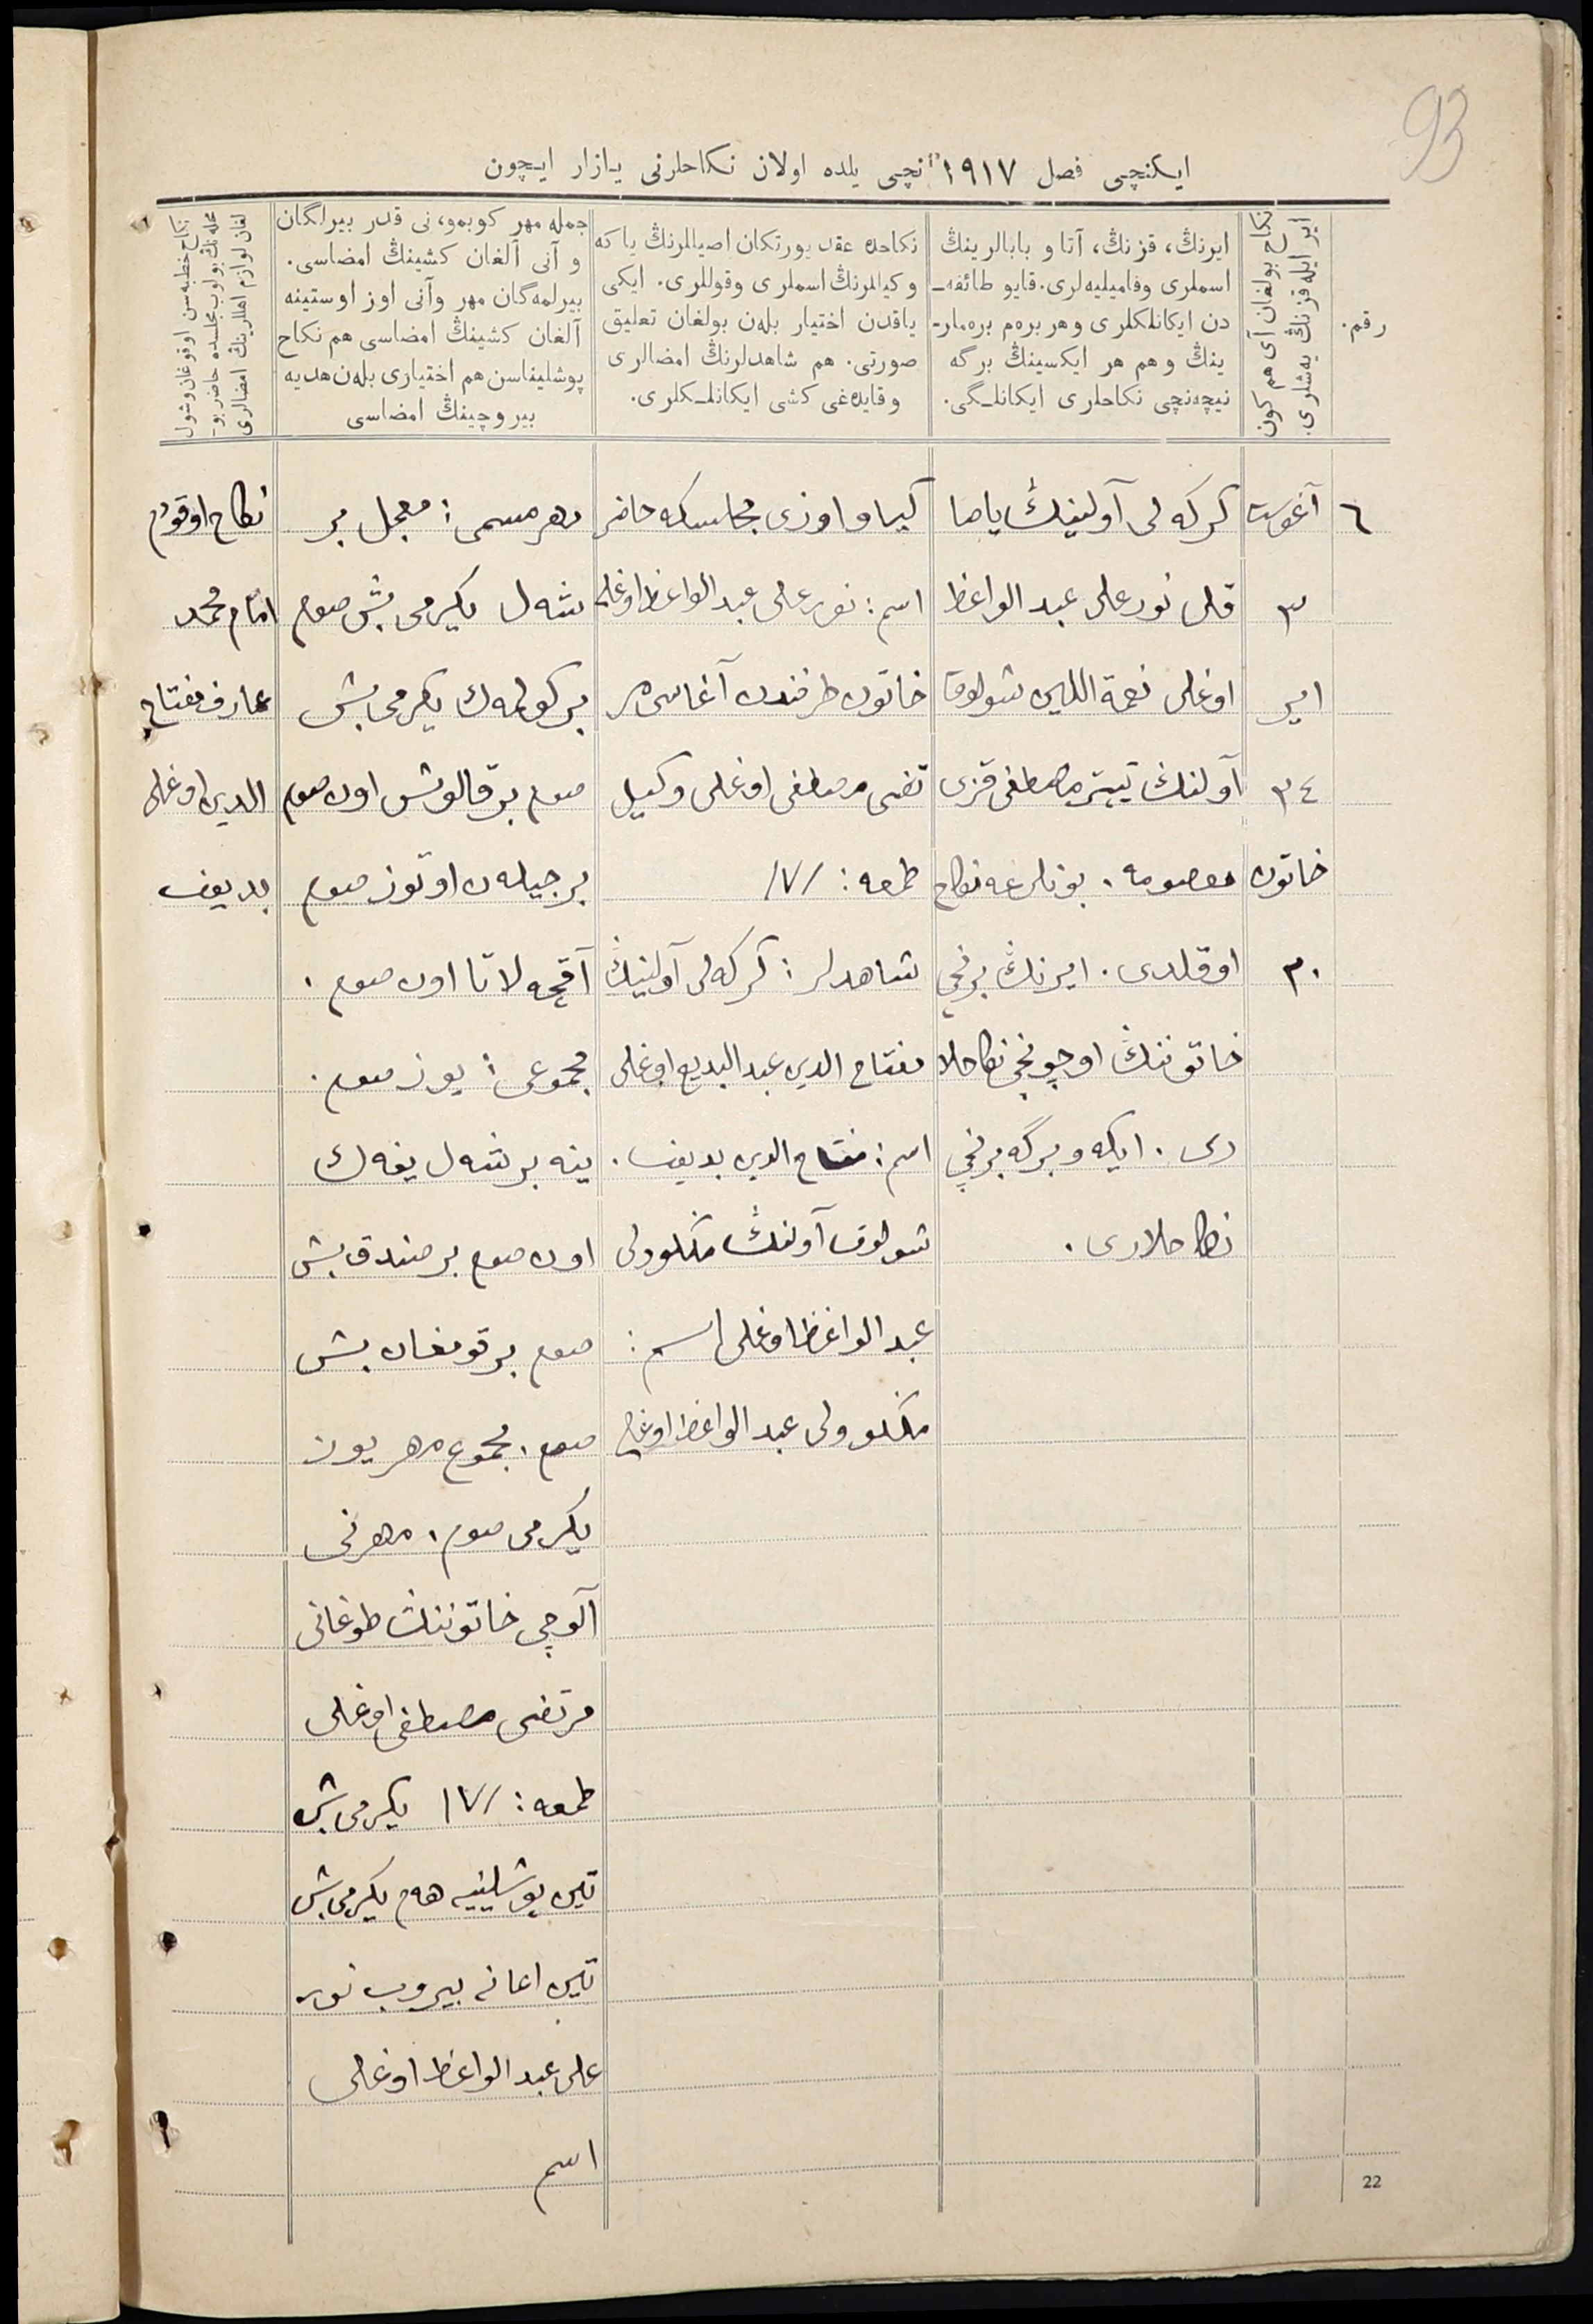 93
ایکنچی فصل ١٩١٧ نچی یلده اولان نکاحلرنی یازار ایچون
رقم.
نکاح بولغان آی هم کون
ایر ایله قزنڭ یه‌شلری.
ایرنڭ، قزنڭ، آتا و بابالرینڭ
اسملری وفامیلیه‌لری. قایو طائفه‌ـ
دن ایکانلکلری وهر بره‌م بره‌مارـ
ینڭ و هم هر ایکسینڭ برگه
نیچه‌نچی نکاحلری ایکانلـگی.
نکاحده عقد یورتکان اصیللرنڭ یا که
وکیللرنڭ اسملری وقوللری. ایکی
یاقدن اختیار بلەن بولغان تعلیق
صورتی. هم شاهدلرنڭ امضالری
وقایده‌غی کشی ایکانلـکلری.
جمله مهر کوبمو، نی قدر بیرلگان
و آنی آلغان کشینڭ امضاسی.
بیرلمه‌گان مهر وآنی اوز اوستینه
آلغان کشینڭ امضاسی هم نکاح
پوشلیناسن هم اختیاری بلەن هدیه
بیروچینڭ امضاسی
نکاح خطبه‌سن اوقوغان وشول
محله‌نڭ بولوب مجلسده حاضر بوـ
لغان لوازم اهللارینڭ امضالری
٦
آغوست
٣
ایر
٣٤
خاتون
٣٠
کرکه‌لی آولینڭ یاصا
قلی نورعلی عبد الواعظ
اوغلی نعمة اللین شولوق
آولنڭ مصطفی قزی
معصومه. بونلرعه نکاح
اوقلدی. ایرنڭ برنچی
خاتوننڭ اوچونچی نکاحلا
ری. ایکه و برگه برنچی
نکاحلاری.
کیاو اوزی مجلسکه حاضر
اسم: نورعلی عبد الواعظ اوغلی
خاتون طرفندن آغاسی مر
تضی مصطفی اوغلی وکیل
طمعه: /٧١
شاهدلر: کرکه‌لی آولینڭ
مفتاح الدین عبد البدیع اوغلی
اسم: مفتاح الدین بدیعف.
شولوق آولنڭ منکلوولی
عبد الواعظ اوغلی اسم:
منکلوولی عبد الواعظ اوغلی
مهر مسمی: معجل بر
شه‌ل یکرمی بش صوم
بر کولمه‌ك یکرمی بش
صوم بر قالوش اون صوم
بر جیله‌ن اوتوز صوم
آقچه لاتا اون صوم.
مجموعی: یوز صوم.
ینه بر شه‌ل یفه‌ك
اون صوم بر صندق بش
صوم بر قومغان بش
صوم. مجموع مهر یوز
یکرمی صوم. مهرنی
آلوچی خاتوننڭ طوغانی
مرتضی مصطفی اوغلی
طمعه: /٧١ یکرمی بش
تین پوشلینه هم یکرمی بش
تین اعانه بیروب نور
علی عبد الواعظ اوغلی
اسم
نکاح اوقودم
امام محمد
عارف مفتاح
الدین اوغلی
بدیعف
22